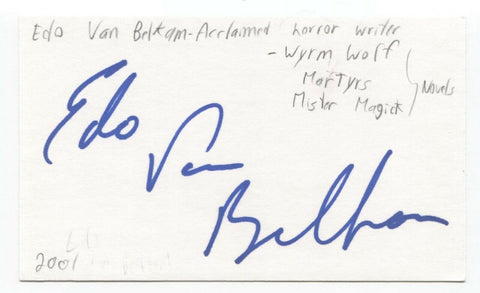 Edo Van Belkam-Acclaimed horror writer
- Wyrm Wolf
Martyrs
Mister Magick
Novels
Edo
Van
Belkom
2001